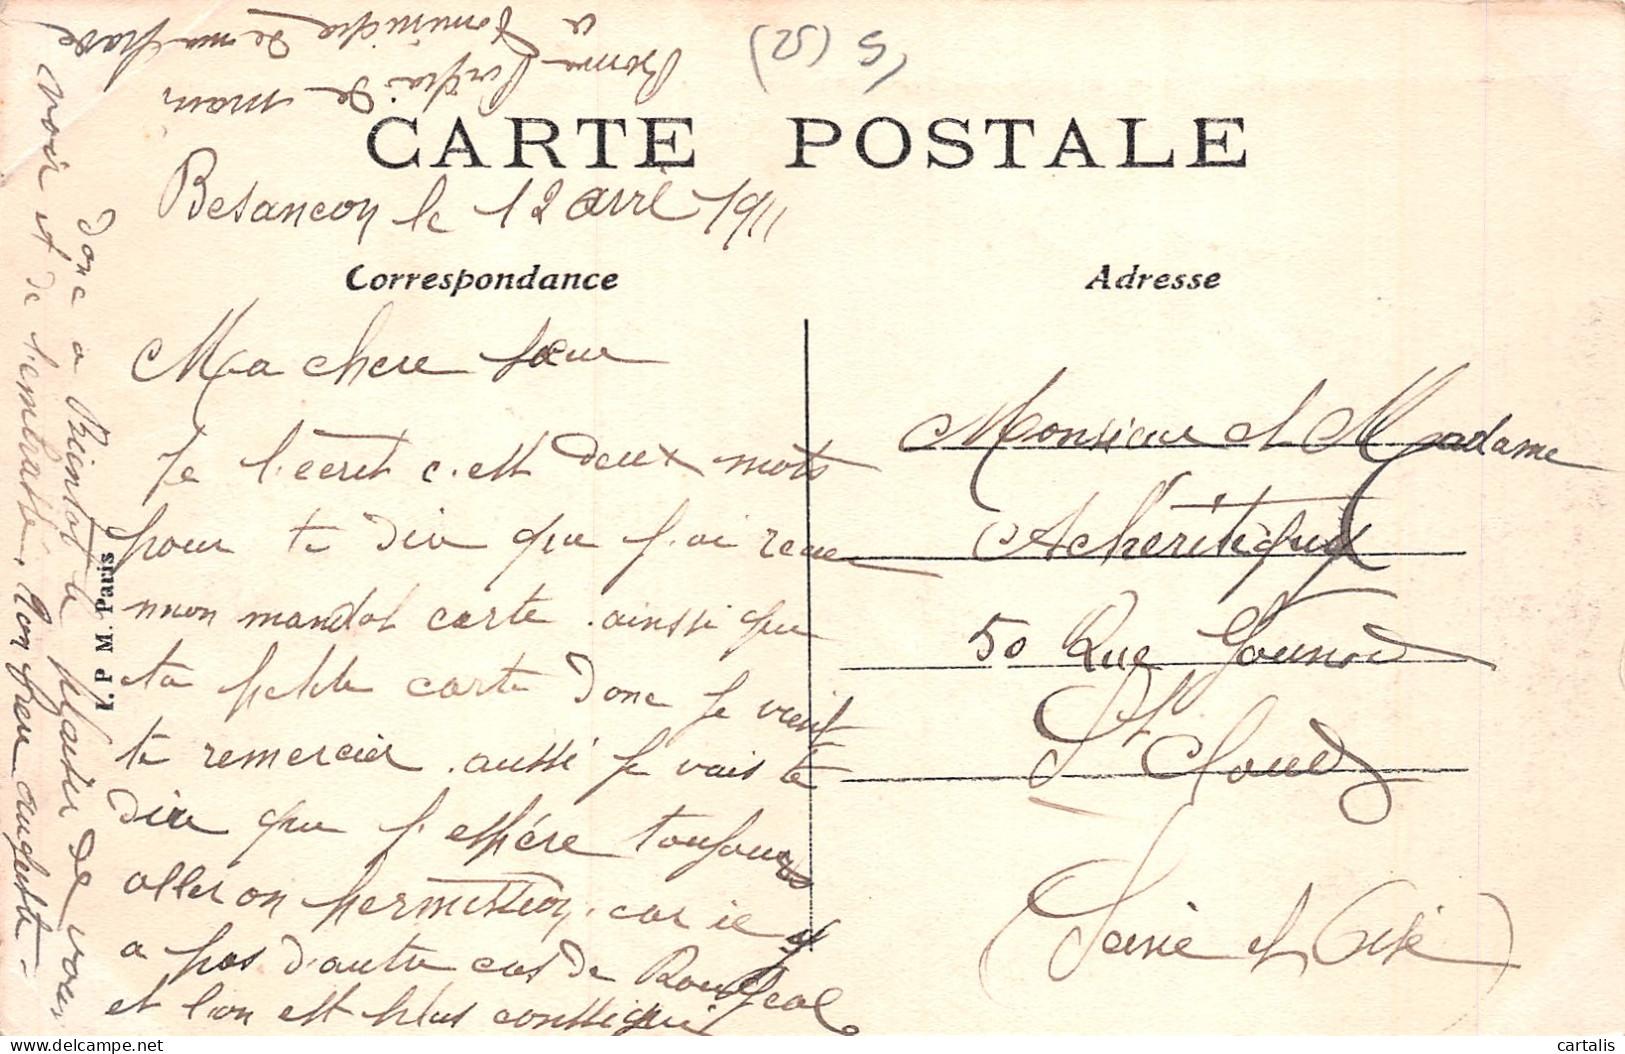 (52) 5/
CARTE POSTALE
Besancon le 12 avril 1911
Correspondance
Ma chere sœur
Je l'ecret c'est deux mots
pour te dire que j'ai recue
mon mandat carte. ainsi que
ta petite carte donc je vient
te remercier. aussi je vais te
dire que j'espére toujours
aller on permission. car il y
a pas d'autre cas de
et l'on est plus consigné
donc a Bientot le plaisir de vous
voir et de t'embrassé. Ton frere auguste.
Bonne de main
a de ma
I. P. M. Paris
Adresse
Monsieur et Madame
50 Rue Gounod
St Cloud
(Seine et Oise)
cartalis
delcampe.net